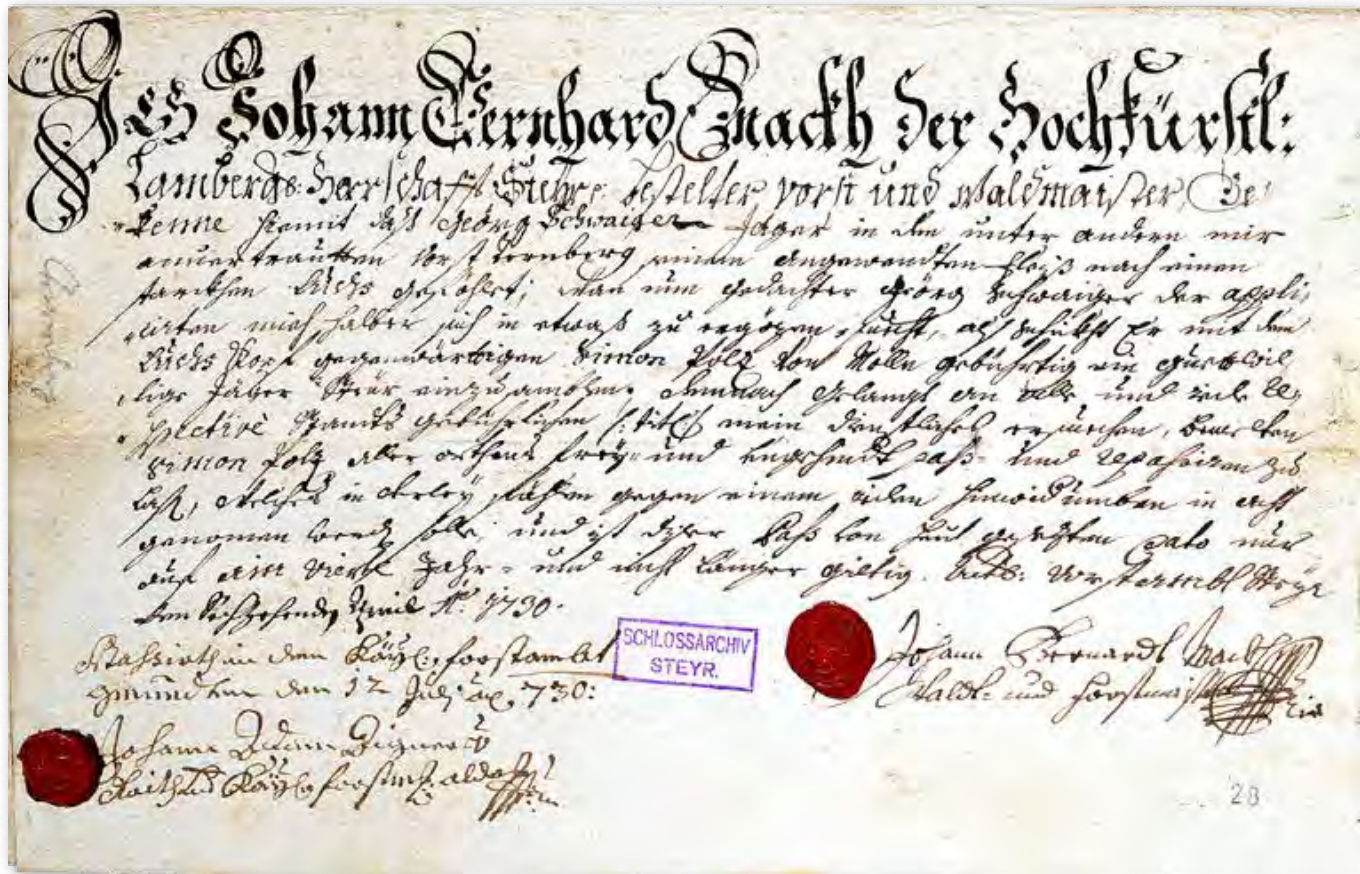 Ich Johann Bernhard Mackh der Hochfürstl:
Lambergs: Herrschafft Steyr, bestelter vorst und Waldmaister, Be-
kenne hiemit daß Georg Schwaiger Jäger in dem unter andern mir
anvertrautten Vorst Ternberg seinem angewendten Fleiß nach einen
starckhen Luchs gefählet; wan nun gedachter Georg Schwaiger der appli-
cirten mieh halber sich in etwaß zu ergözen sucht, als schikht Er mit dem
Luchs Kopf gegenwärtigen Simon Polz von Molln gebührtig ein guetwil-
lige Jäger Steur einzusamblen. Demnach gelangt an alle und iede re-
spective Standts gebührlichen /: titl :/ mein dienstliches ersuechen, besagten
Simon Polz aller orthen frey- und ungehindt paß- und repassiren zu
laß, welches in derley fählen gegen einem ieden hinwidumben in acht
genomen werd solle, und ist diser Paß von heut gesezten dato nur
auf ein viertl Jahr- und nicht länger giltig. Actũ: Vorstambt Steyr
den Sechzehenden April Aõ. 1730.
Passirth in dem Kayl: forstambt
Gmundten den 12 July ao 730:
Johann Adam
Kayl: forstmst: alda
SCHLOSSARCHIV
STEYR.
Johann Bernardt Mackh
Waldt- und Forstmaister
28